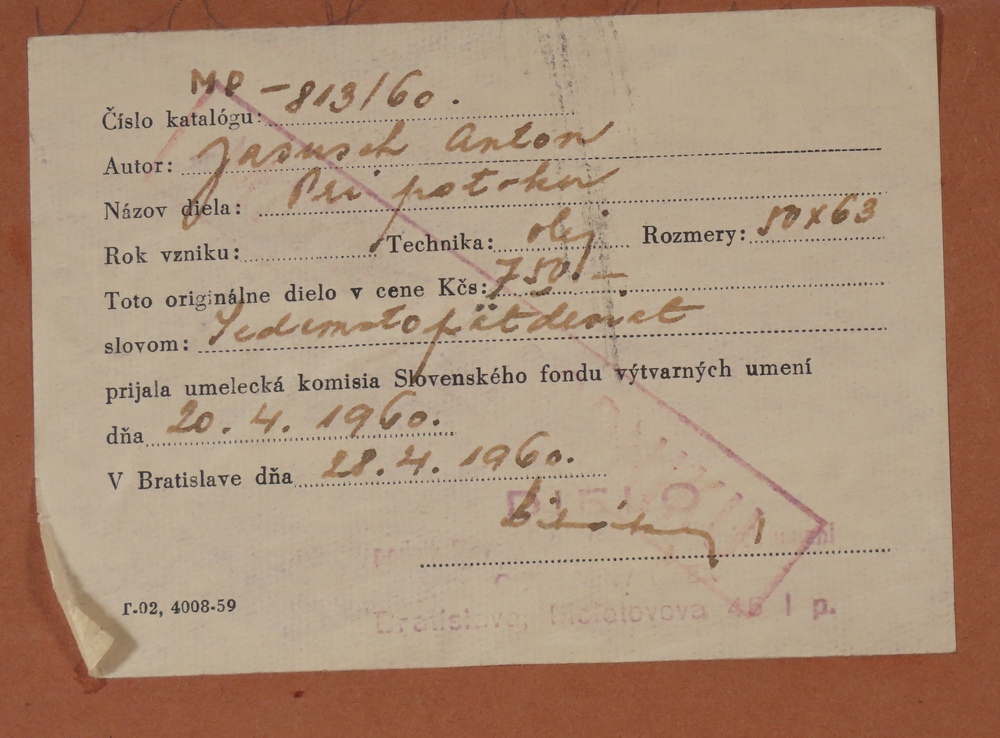 Číslo katalógu: MP - 813/60.
Autor: Jasusch Anton
Názov diela: Pri potoku
Rok vzniku: Technika: olej Rozmery: 50x63
Toto originálne dielo v cene Kčs: 750.-
slovom: Sedemstopäťdesiat
prijala umelecká komisia Slovenského fondu výtvarných umení
dňa 20. 4. 1960.
V Bratislave dňa 28. 4. 1960.
DIELO
umení
Bratislava, 45 I p.
T-02, 4008-59